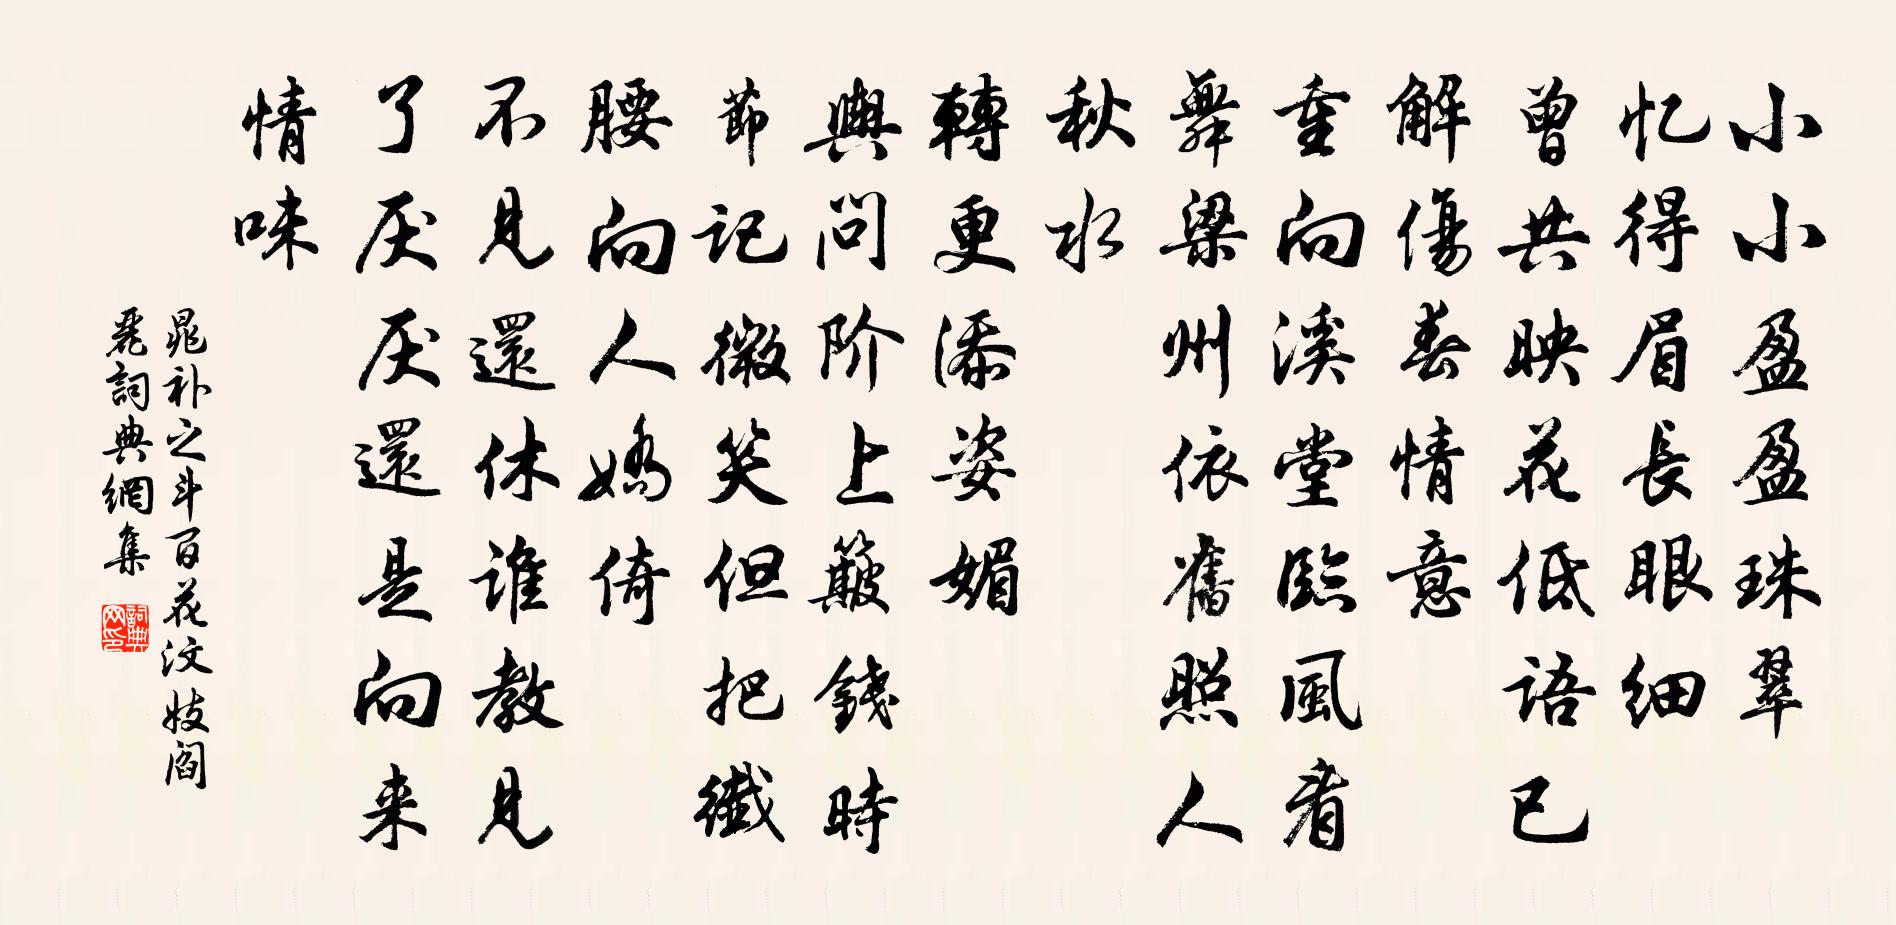 小小盈盈珠翠
忆得眉長眼细
曾共映花低语已
解傷春情意
重向溪堂臨風看
舞梁州依舊照人
秋水
轉更添姿媚
與问阶上簸錢時
節记微笑但把纖
腰向人嬌倚
不見還休谁教見
了厌厌還是向来
情味
晁补之斗百花汶妓阎
麗詞典網集
詞典网印